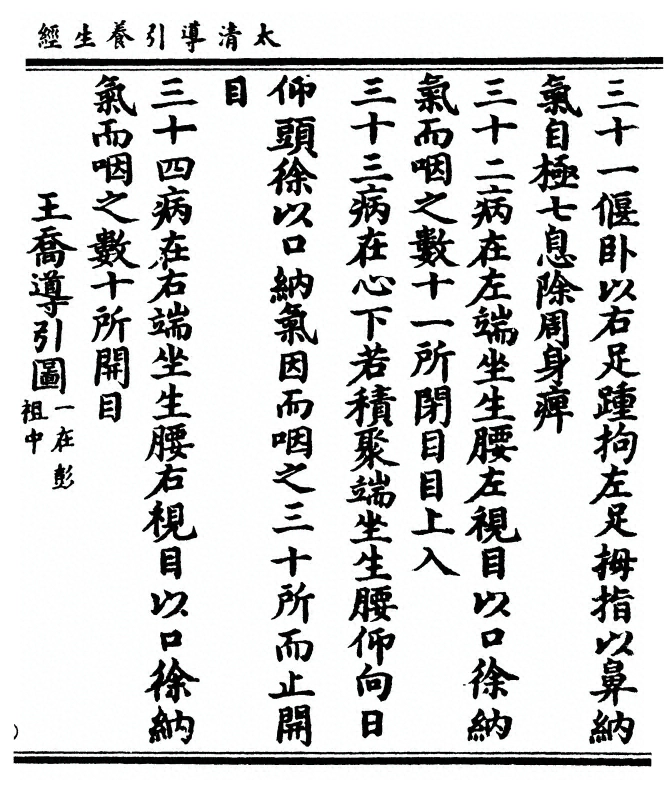 太清導引養生經
三十一偃卧以右足踵拘左足拇指以鼻納
氣自極七息除周身痺
三十二病在左端坐生腰左視目以口徐納
氣而咽之數十一所閉目目上入
三十三病在心下若積聚端坐生腰仰向日
仰頭徐以口納氣因而咽之三十所而止開
目
三十四病在右端坐生腰右視目以口徐納
氣而咽之數十所開目
王喬導引圖一在彭
祖中